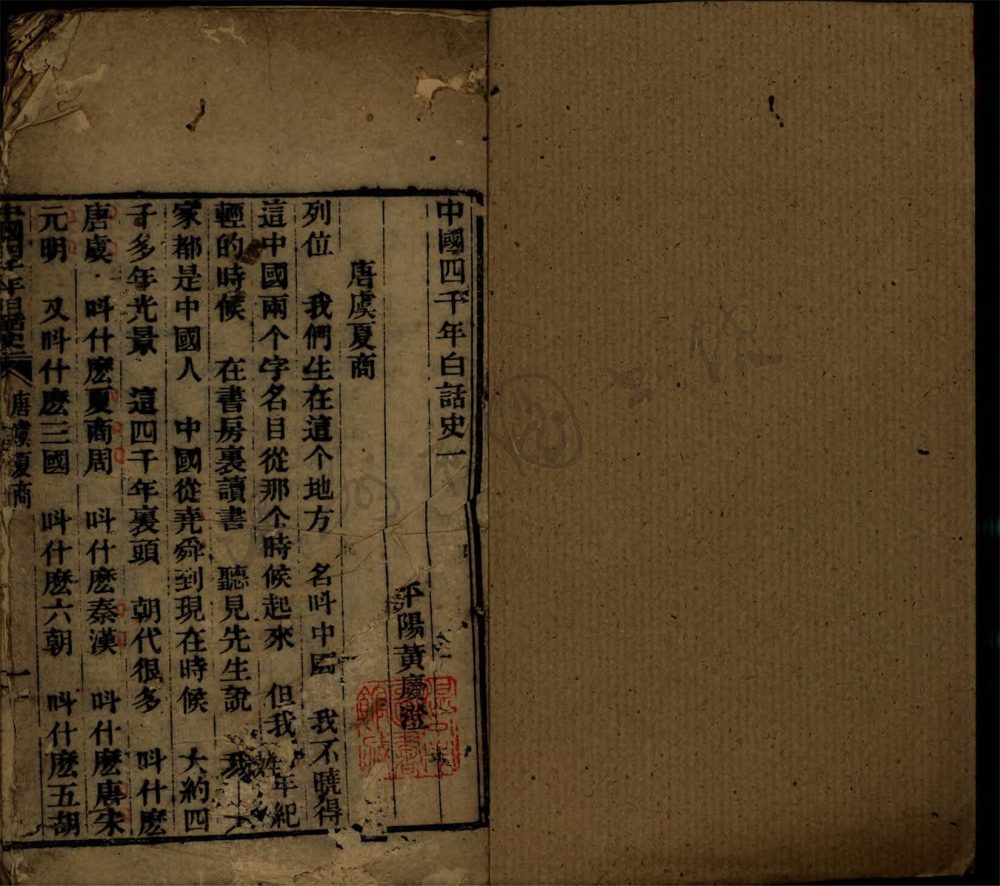 中國四千年白話史一
平陽黃慶澄
唐虞夏商
列位　我們生在這个地方　名呌中囯　我不曉得
這中國兩个字名目從那个時候起來　但我年紀
輕的時候　在書房裏讀書　聽見先生說　我
家都是中國人　中國從堯舜到現在時候　大約四
千多年光景　這四千年裏頭　朝代很多　呌什麽
唐虞　呌什麽夏商周　呌什麽秦漢　呌什麽唐宋
元明　又呌什麽三國　呌什麽六朝　呌什麽五胡
中國四千年白話史　唐虞夏商　一